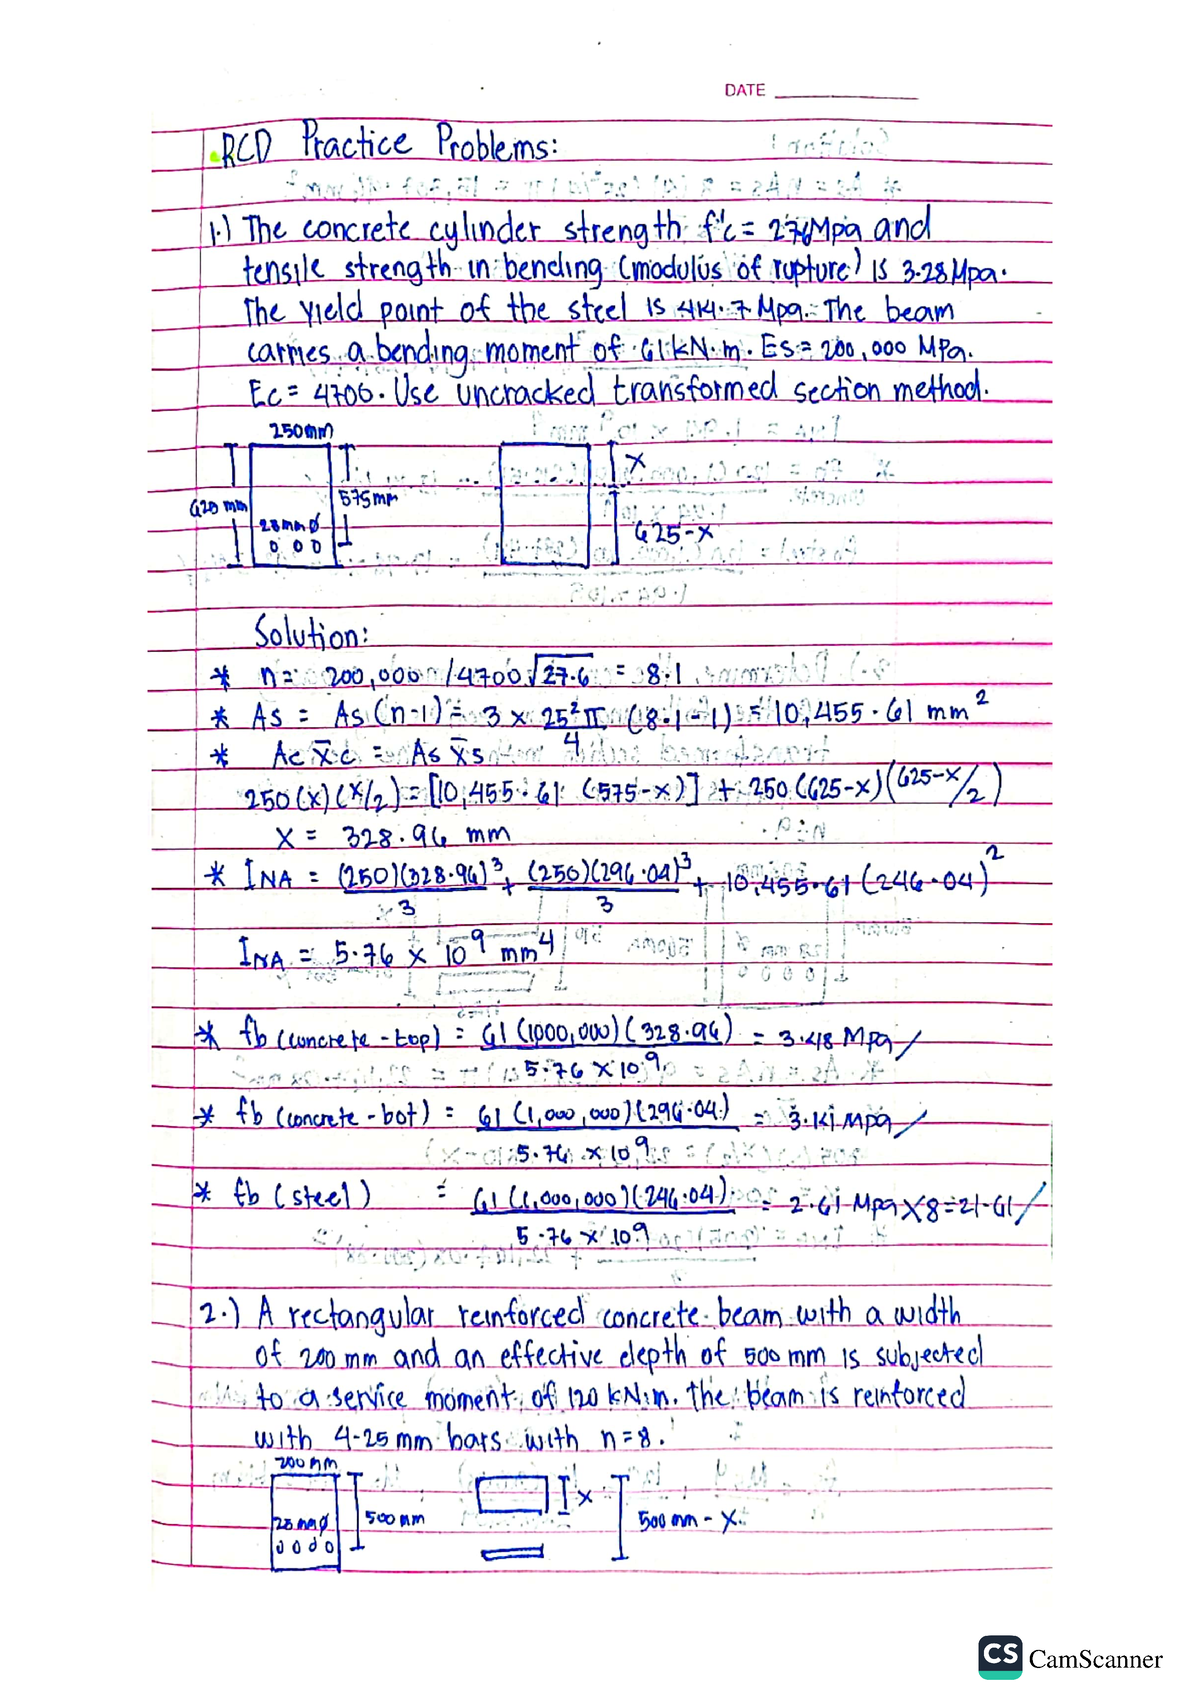 DATE
RCD Practice Problems:
1.) The concrete cylinder strength f'c = 27.6Mpa and
tensile strength in bending (modulus of rupture) is 3.28 Mpa.
The yield point of the steel is 414.7 Mpa. The beam
carries a bending moment of 61 kN.m. Es = 200,000 MPa.
Ec = 4700. Use uncracked transformed section method.
250mm
x
625 mm
575mm
28mmø
625-x
Solution:
* n = 200,000 / 4700 √27.6 = 8.1
* As = As (n-1) = 3 x 25²π/4 (8.1-1) = 10,455.61 mm²
* Ac x̄c = As x̄s
250(x)(x/2) = [10,455.61 (575-x)] + 250(625-x)(625-x/2)
x = 328.96 mm
* INA = (250)(328.96)³/3 + (250)(296.04)³/3 + 10,455.61 (246.04)²
INA = 5.76 x 10⁹ mm⁴
* fb (concrete - top) = 61 (1000,000)(328.96) / 5.76 x 10⁹ = 3.48 Mpa
* fb (concrete - bot) = 61 (1,000,000)(296.04) / 5.76 x 10⁹ = 3.14 Mpa
* fb (steel) = 61 (1,000,000)(246.04) / 5.76 x 10⁹ = 2.61 Mpa x 8 = 21.61
2.) A rectangular reinforced concrete beam with a width
of 200 mm and an effective depth of 500 mm is subjected
to a service moment of 120 kN.m. the beam is reinforced
with 4-25 mm bars with n=8.
200 mm
x
500 mm
500 mm - x
28 mmø
CS CamScanner